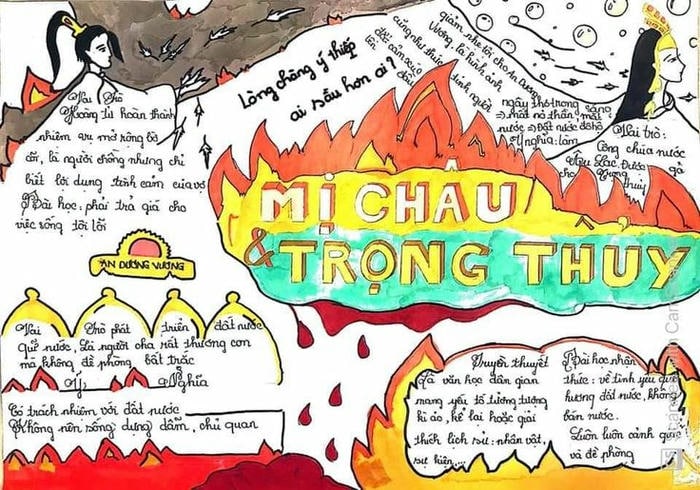 Lòng chàng ý thiếp
ai sầu hơn ai?
giảm nhẹ tội cho An Dương
Vương: là hình ảnh
cũng như thức tỉnh người
ngây thơ trong sáng
=> mất nỏ thần, mất
nước => Đất nước đô hộ
Ý nghĩa: làm
Vai Trò
Hoàng tử hoàn thành
nhiệm vụ mở rộng bờ
cõi, là người chồng nhưng chỉ
biết lợi dụng tình cảm của vợ
Bài học: phải trả giá cho
việc sống tội lỗi
Vai trò:
Công chúa nước
Âu Lạc. Được gả
cho Trọng Thủy
MỊ CHÂU
& TRỌNG THỦY
AN DƯƠNG VƯƠNG
Vai Trò phát triển đất nước
quê nước, Là người cha rất thương con
mà không đề phòng bất trắc
Ý Nghĩa
Có trách nhiệm với đất nước
Không nên sống dựng dẫm, chủ quan
Truyền thuyết
Là văn học dân gian
mang yếu tố tưởng tượng
kì ảo, kể lại hoặc giải
thích lịch sử: nhân vật,
sự kiện...
Bài học nhận
thức: về tình yêu quê
hương đất nước, không
bán nước.
Luôn luôn cảnh giác
và đề phòng